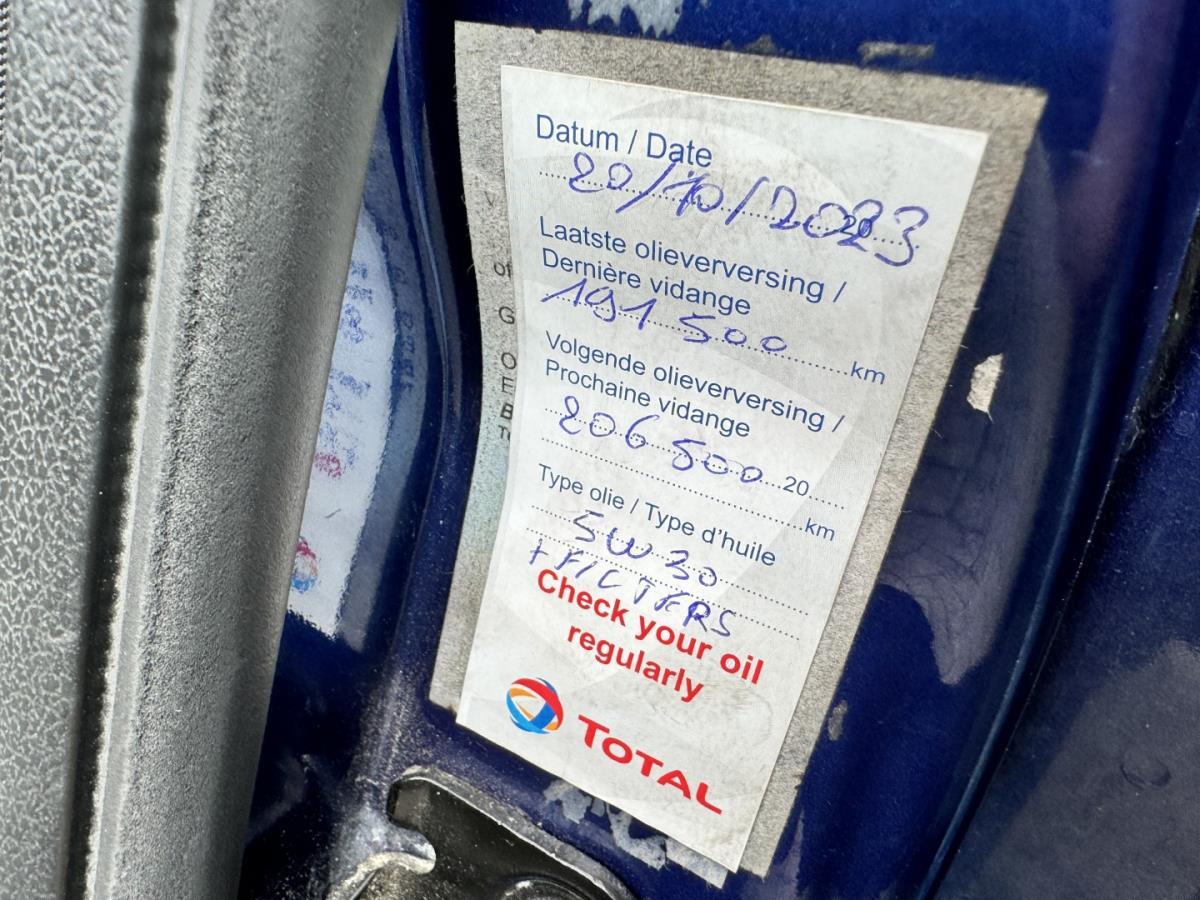 Datum / Date
20/10/2023
Laatste olieverversing /
Dernière vidange
191 500 km
Volgende olieverversing /
Prochaine vidange
206 500 20
km
Type olie / Type d'huile
5W30
+ FILTERS
Check your oil
regularly
TOTAL